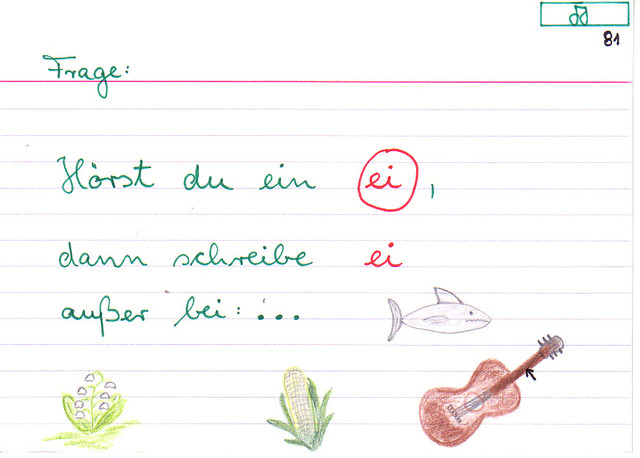 81
Frage:
Hörst du ein ei,
dann schreibe ei
außer bei: ...